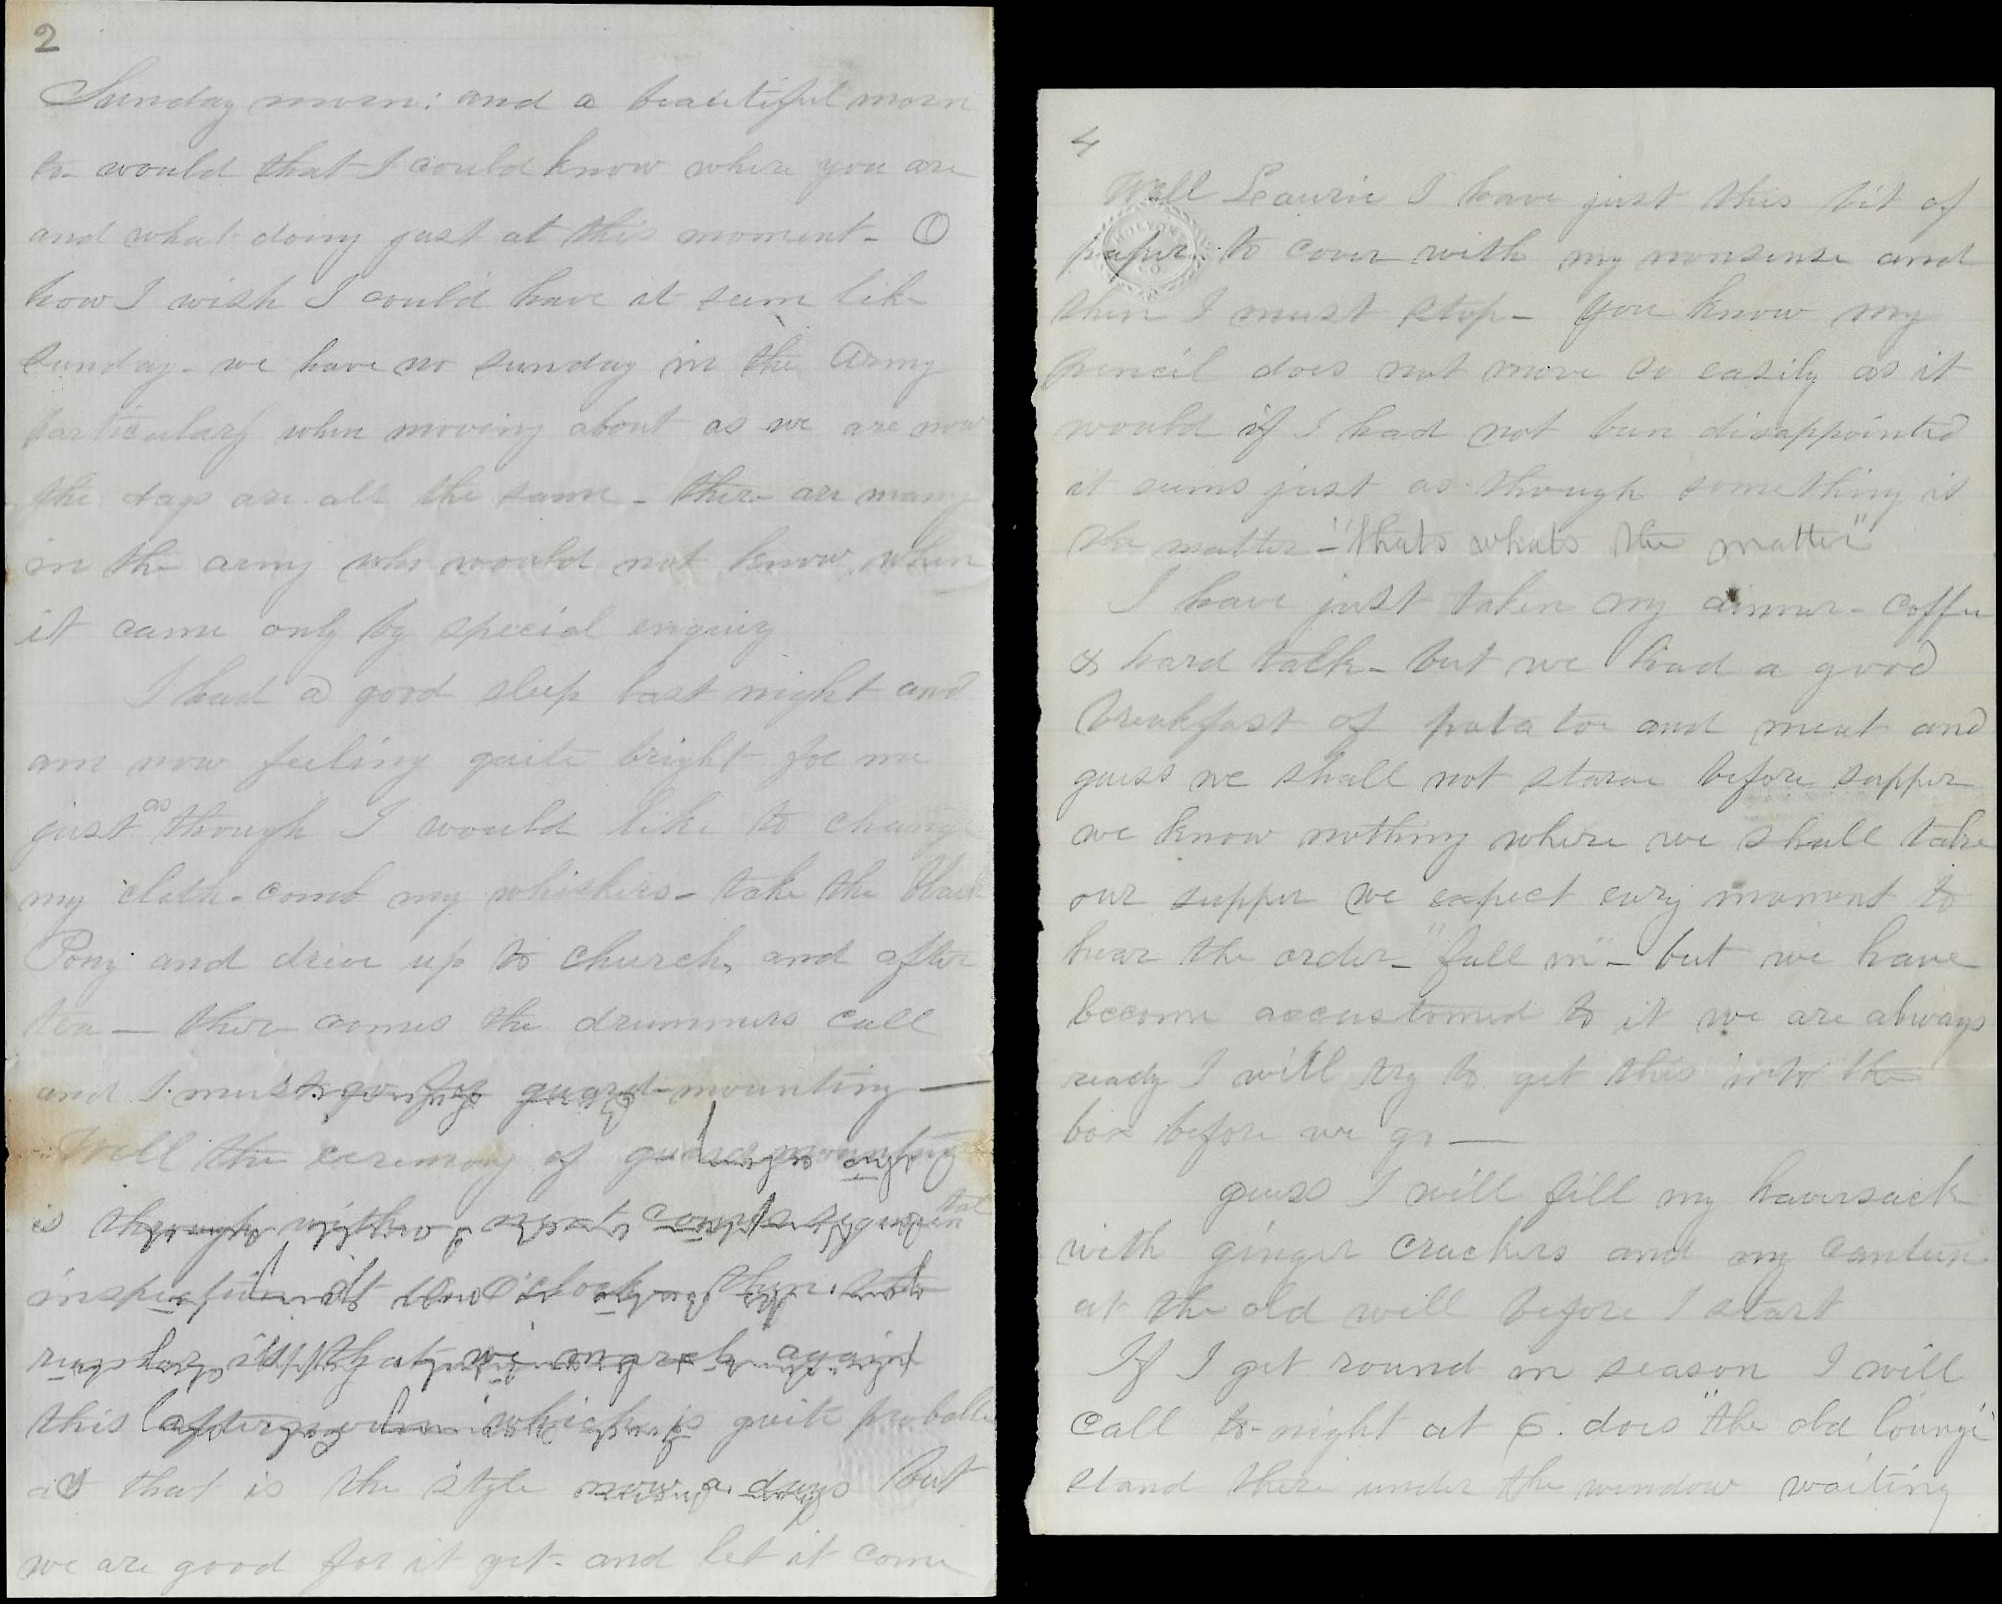 2
Sunday morn: and a beautiful morn
to- would that I could know where you are
and what doing just at this moment- O
how I wish I could have it seem like
sunday- we have no sunday in the Army
particularly when moving about as we are now
the days are all the same - there are many
in the army who would not know when
it came only by special enquiry
I had a good sleep last night and
am now feeling quite bright for me
just as though I would like to change
my cloth- comb my whiskers- take the black
Pony and drive up to church, and after
tea — there comes the drummers call
and I must go for guard-mounting —
Well the ceremony of guard mounting
is through with
inspection at ten o'clock then
rumor is that we march again
this afternoon which is quite probable
as that is the style now a days but
we are good for it yet- and let it come
4
Well Laurie I have just this bit of
paper to cover with my nonsense and
then I must stop- you know my
pencil does not move so easily as it
would if I had not been disappointed
it seems just as though something is
the matter -"thats whats the matter"
HOLYOKE
CO
I have just taken my dinner- coffee
& hard talk- but we had a good
breakfast of potatoe and meat and
guess we shall not starve before supper
we know nothing where we shall take
our supper we expect evry moment to
hear the order- "fall in"- but we have
become accustomed to it we are always
ready I will try to get this into the
box before we go —
guess I will fill my haversack
with ginger crackers and my canteen
at the old will before I start
If I get round in season I will
call to-night at 6. does "the old lounge"
stand there under the window waiting